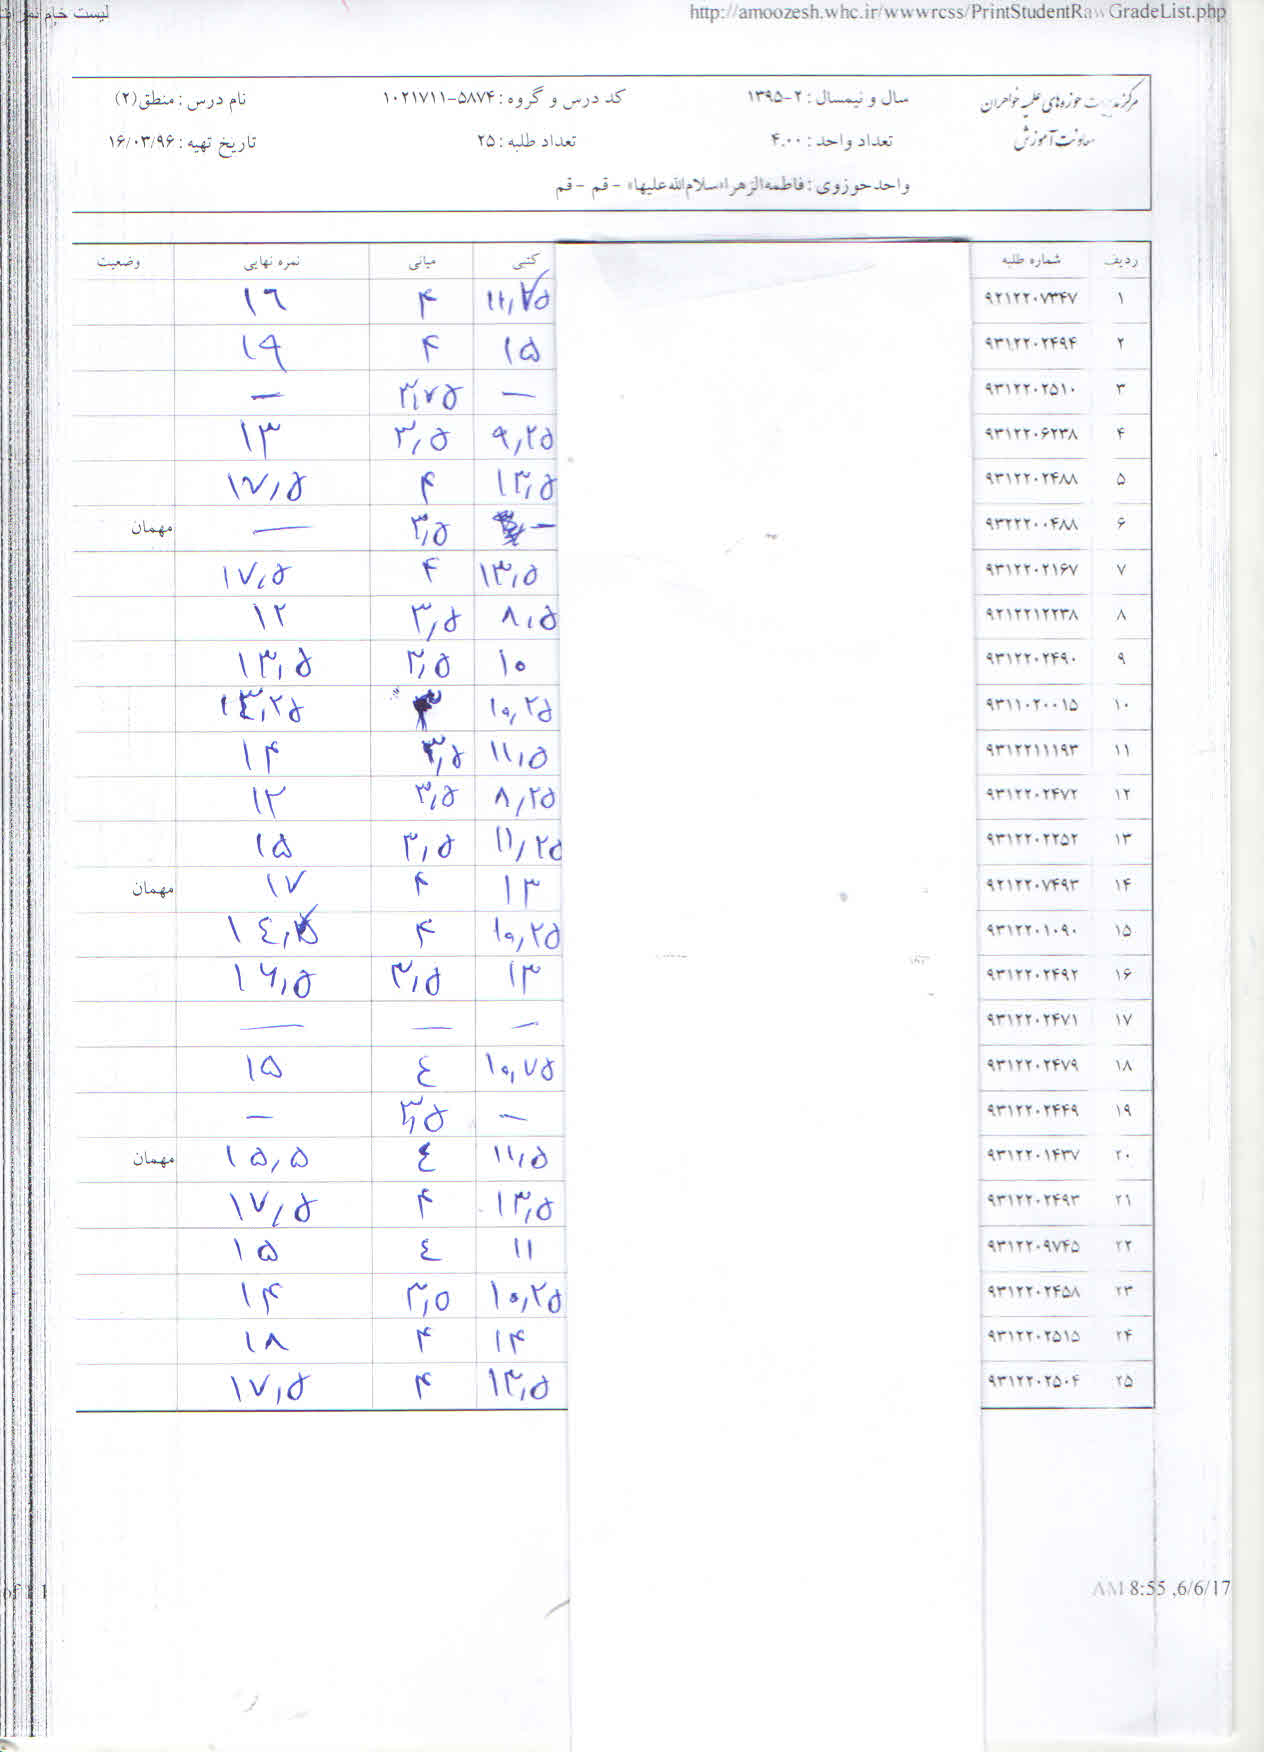 لیست خام نمرات http://amoozesh.whc.ir/wwwrcss/PrintStudentRawGradeList.php
مرکز مدیریت حوزه‌های علمیه خواهران سال و نیمسال : ۲-۱۳۹۵ کد درس و گروه : ۵۸۷۴-۱۰۲۱۷۱۱ نام درس : منطق(۲)
معاونت آموزش تعداد واحد : ۴.۰۰ تعداد طلبه : ۲۵ تاریخ تهیه : ۱۶/۰۳/۹۶
واحد حوزوی : فاطمه‌الزهرا«سلام‌الله‌علیها» - قم - قم
ردیف شماره طلبه کتبی میانی نمره نهایی وضعیت
۱ ۹۲۱۲۲۰۷۳۴۷ ۱۱,۷۵ ۴ ۱۶
۲ ۹۳۱۲۲۰۲۴۹۴ ۱۵ ۴ ۱۹
۳ ۹۳۱۲۲۰۲۵۱۰ — ۳,۷۵ —
۴ ۹۳۱۲۲۰۶۲۳۸ ۹,۲۵ ۳,۵ ۱۳
۵ ۹۳۱۲۲۰۲۴۸۸ ۱۳,۵ ۴ ۱۷,۵
۶ ۹۳۲۲۲۰۰۴۸۸ — ۳,۵ — مهمان
۷ ۹۳۱۲۲۰۲۱۶۷ ۱۳,۵ ۴ ۱۷,۵
۸ ۹۲۱۲۲۱۲۲۳۸ ۸,۵ ۳,۵ ۱۲
۹ ۹۳۱۲۲۰۲۴۹۰ ۱۰ ۳,۵ ۱۳,۵
۱۰ ۹۳۱۱۰۲۰۰۱۵ ۱۰,۲۵ ۳
۱۱ ۹۳۱۲۲۱۱۱۹۳ ۱۱,۵ ۳,۵ ۱۴
۱۲ ۹۳۱۲۲۰۲۴۷۲ ۸,۲۵ ۳,۵ ۱۲
۱۳ ۹۳۱۲۲۰۲۲۵۲ ۱۱,۲۵ ۳,۵ ۱۵
۱۴ ۹۲۱۲۲۰۷۴۹۳ ۱۳ ۴ ۱۷ مهمان
۱۵ ۹۳۱۲۲۰۱۰۹۰ ۱۰,۲۵ ۴
۱۶ ۹۳۱۲۲۰۲۴۹۲ ۱۳ ۳,۵ ۱۶,۵
۱۷ ۹۳۱۲۲۰۲۴۷۱ — — —
۱۸ ۹۳۱۲۲۰۲۴۷۹ ۱۰,۷۵ ٤ ۱۵
۱۹ ۹۳۱۲۲۰۲۴۴۹ — ۳,۵ —
۲۰ ۹۳۱۲۲۰۱۴۳۷ ۱۱,۵ ٤ ۱۵,۵ مهمان
۲۱ ۹۳۱۲۲۰۲۴۹۳ ۱۳,۵ ۴ ۱۷,۵
۲۲ ۹۳۱۲۲۰۹۷۴۵ ۱۱ ٤ ۱۵
۲۳ ۹۳۱۲۲۰۲۴۵۸ ۱۰,۲۵ ۳,۵ ۱۴
۲۴ ۹۳۱۲۲۰۲۵۱۵ ۱۴ ۴ ۱۸
۲۵ ۹۳۱۲۲۰۲۵۰۴ ۱۳,۵ ۴ ۱۷,۵
AM 8:55 ,6/6/17